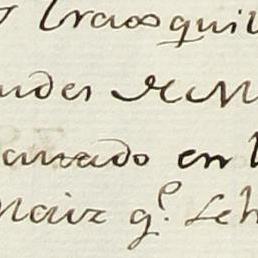 y Traosquil
udes de M
antado en l
Maiz q.e Leh